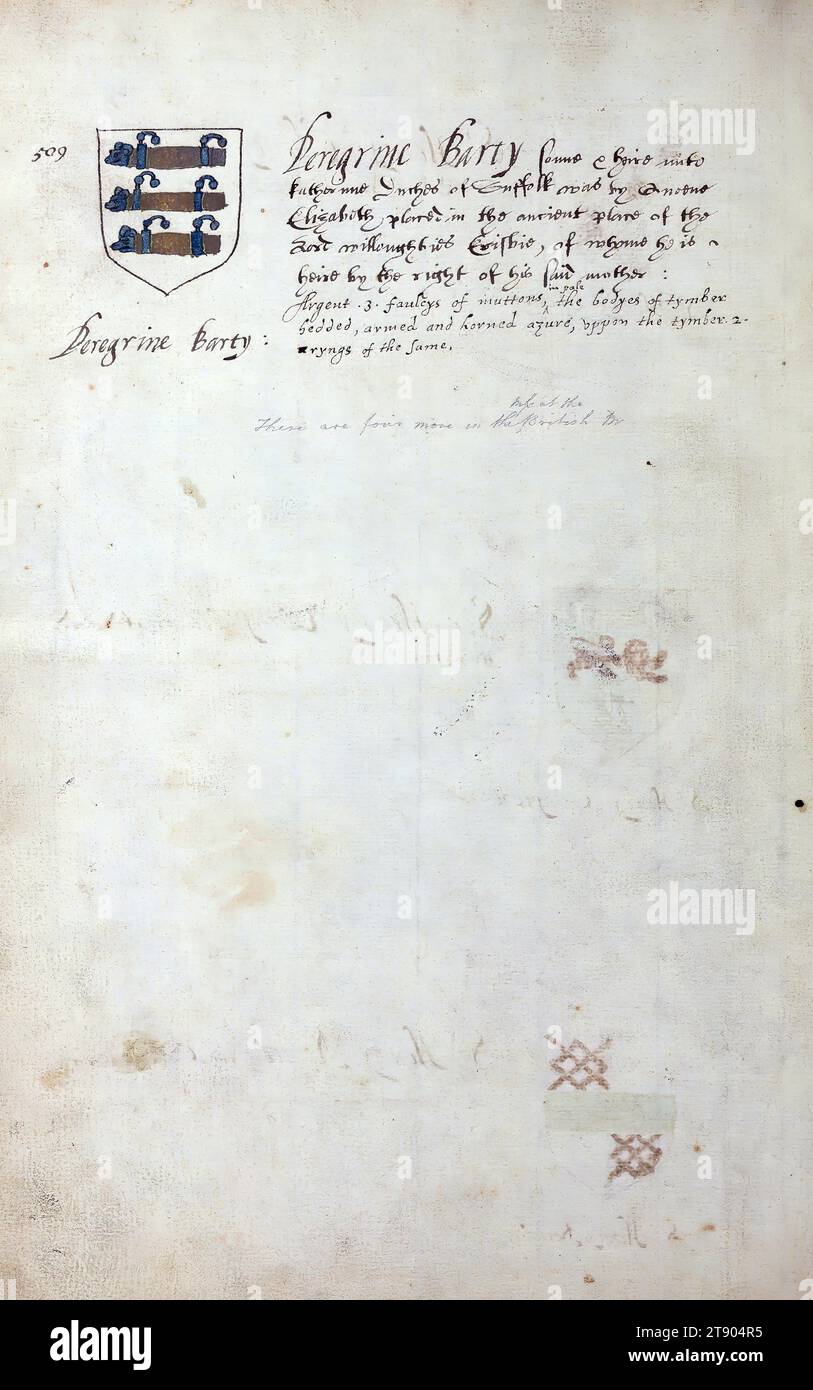 509
Peregrine Barty sonne & heire unto
Katherine Duches of Suffolk was by Queene
Elizabeth, placed in the ancient place of the
Lord willoughties Erisbie, of whome he is
heire by the right of his said mother :
Argent .3. fauleys of muttons, in pale the bodyes of tymber
hedded, armed and horned azure, uppon the tymber .2.
ryngs of the same.
Peregrine Barty :
There are four more in the Ms at the British M
alamy
alamy
alamy
alamy
alamy
alamy
alamy
Image ID: 2T904R5
www.alamy.com